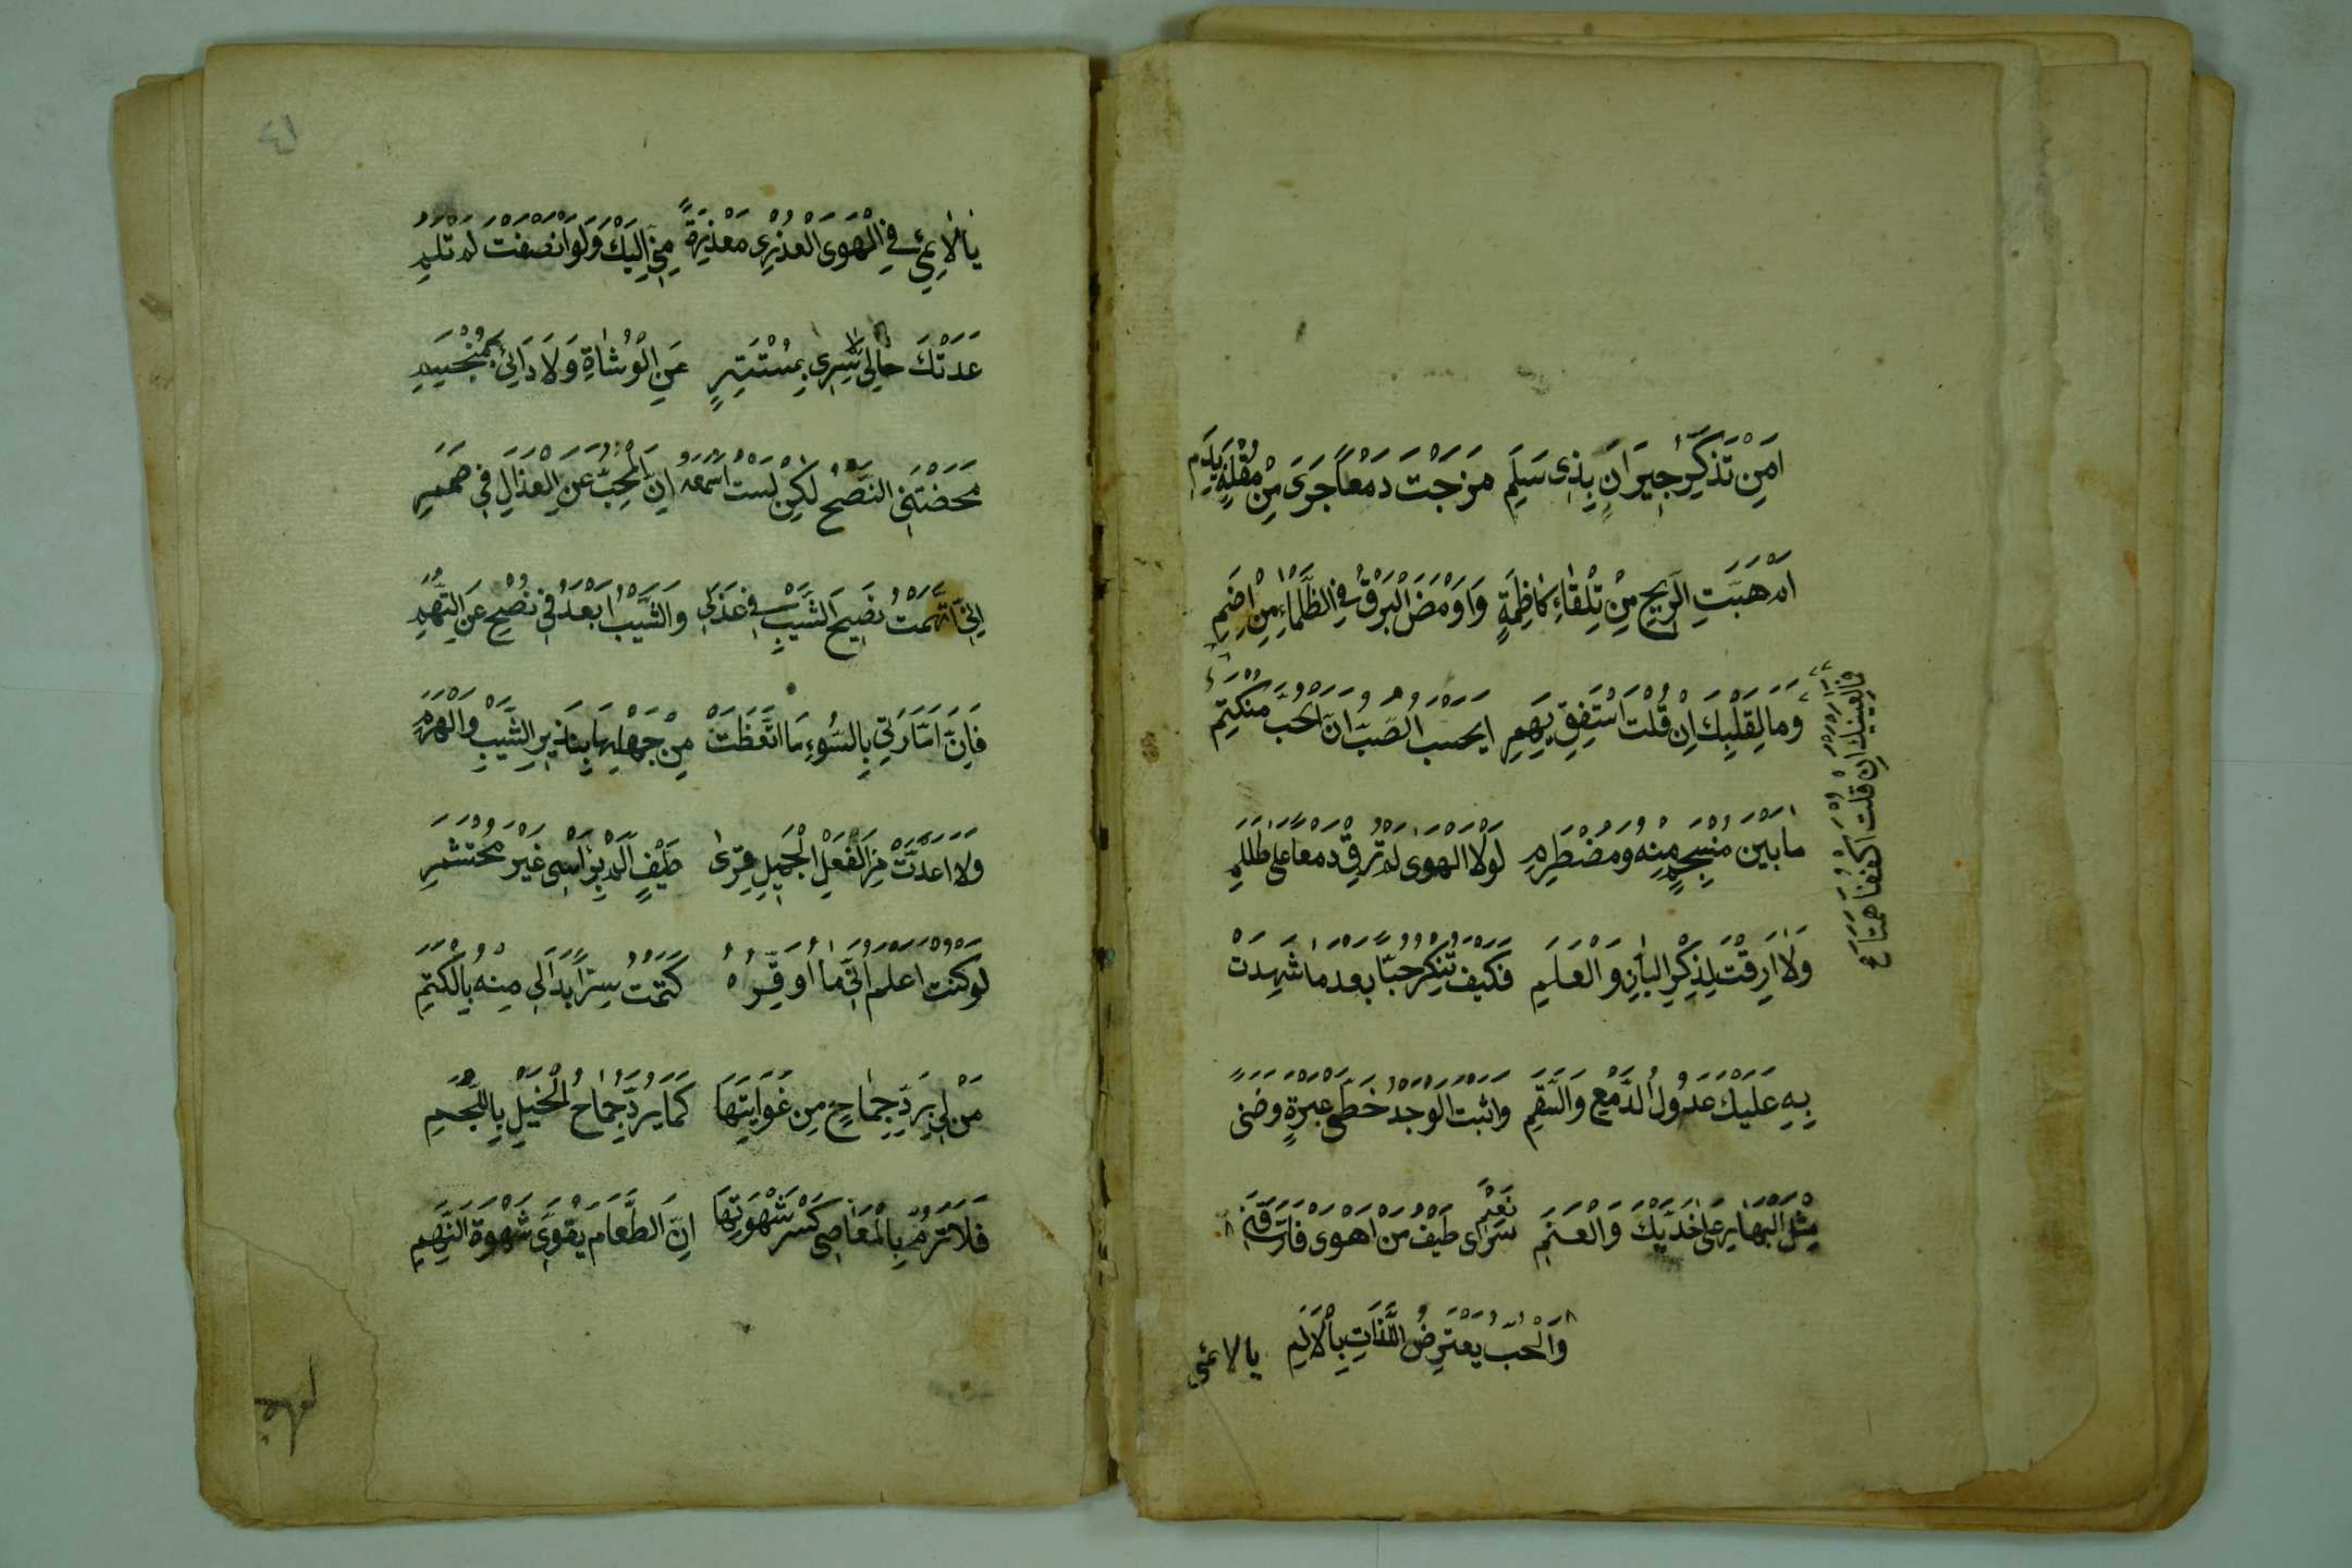 اَمِنْ تَذَكُّرِ جِيرَانٍ بِذِى سَلَمِ مَزَجْتَ دَمْعًا جَرَىَ مِنْ مُقْلَةٍ بِدَمِ
اَمْ هَبَّتِ الرِّيحُ مِنْ تِلْقَاءِ كَاظِمَةٍ وَاَوْمَضَ الْبَرْقُ فِي الظَّلْمَاءِ مِنْ اِضَمِ
فَمَا لِعَيْنَيْكَ اِنْ قُلْتَ اكْفُفَا هَمَتَا
وَمَا لِقَلْبِكَ اِنْ قُلْتَ اسْتَفِقْ يَهِمِ اَيَحْسَبُ الصَّبُّ اَنَّ الْحُبَّ مُنْكَتِمٌ
مَا بَيْنَ مُنْسَجِمٍ مِنْهُ وَمُضْطَرِمِ لَوْلَا الْهَوَى لَمْ تُرِقْ دَمْعًا عَلَى طَلَلِ
وَلَا اَرِقْتَ لِذِكْرِ الْبَانِ وَالْعَلَمِ فَكَيْفَ تُنْكِرُ حُبًّا بَعْدَ مَا شَهِدَتْ
بِهِ عَلَيْكَ عُدُولُ الدَّمْعِ وَالسَّقَمِ وَاَثْبَتَ الْوَجْدُ خَطَّىْ عَبْرَةٍ وَضَنًى
مِثْلَ الْبَهَارِ عَلَى خَدَّيْكَ وَالْعَنَمِ نَعَمْ سَرَاى طَيْفُ مَنْ اَهْوَى فَاَرَّقَنِى
وَالْحُبُّ يَعْتَرِضُ اللَّذَّاتِ بِالْاَلَمِ يا لائمى
٤١
يَا لَائِمِي فِي الْهَوَى الْعُذْرِى مَعْذِرَةً مِنِّي اِلَيْكَ وَلَوْ اَنْصَفْتَ لَمْ تَلُمِ
عَدَتْكَ حَالِي لَا سِرِّى بِمُسْتَتِرٍ عَنِ الْوُشَاةِ وَلَا دَائِى بِمُنْحَسِمِ
مَحَضْتَنِى النُّصْحَ لَكِنْ لَسْتُ اَسْمَعُهُ اِنَّ الْمُحِبَّ عَنِ الْعُذَّالِ فِى صَمَمِ
اِنِّى اتَّهَمْتُ نَصِيحَ الشَّيْبِ فِى عَذَلِى وَالشَّيْبُ اَبْعَدُ فِى نُصْحٍ عَنِ التُّهَمِ
فَاِنَّ اَمَّارَتِى بِالسُّوءِ مَا اتَّعَظَتْ مِنْ جَهْلِهَا بِنَذِيرِ الشَّيْبِ وَالْهَرَمِ
وَلَا اَعَدَّتْ مِنَ الْفِعْلِ الْجَمِيلِ قِرَى ضَيْفٍ اَلَمَّ بِرَاْسِى غَيْرَ مُحْتَشَمِ
لَوْ كُنْتُ اَعْلَمُ اَنِّى مَا اُوَقِّرُهُ كَتَمْتُ سِرًّا بَدَا لِى مِنْهُ بِالْكَتَمِ
مَنْ لِى بِرَدِّ جِمَاحٍ مِنْ غَوَايَتِهَا كَمَا يُرَدُّ جِمَاحُ الْخَيْلِ بِاللُّجُمِ
فَلَا تَرُمْ بِالْمَعَاصِى كَسْرَ شَهْوَتِهَا اِنَّ الطَّعَامَ يُقَوِّى شَهْوَةَ النَّهِمِ